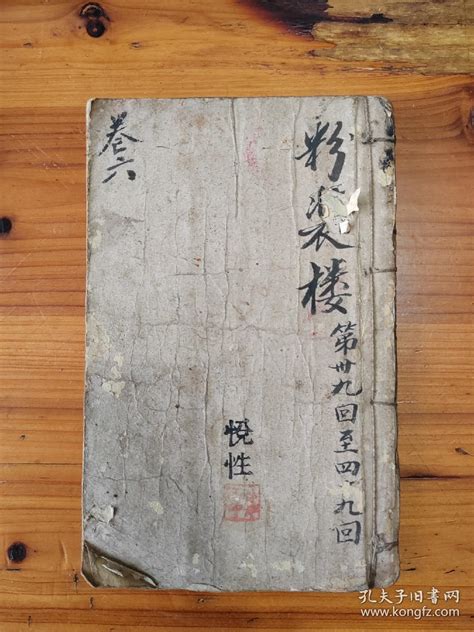 粉装楼
第卅九回至四十九回
卷六
悅性
孔夫子旧书网
www.kongfz.com